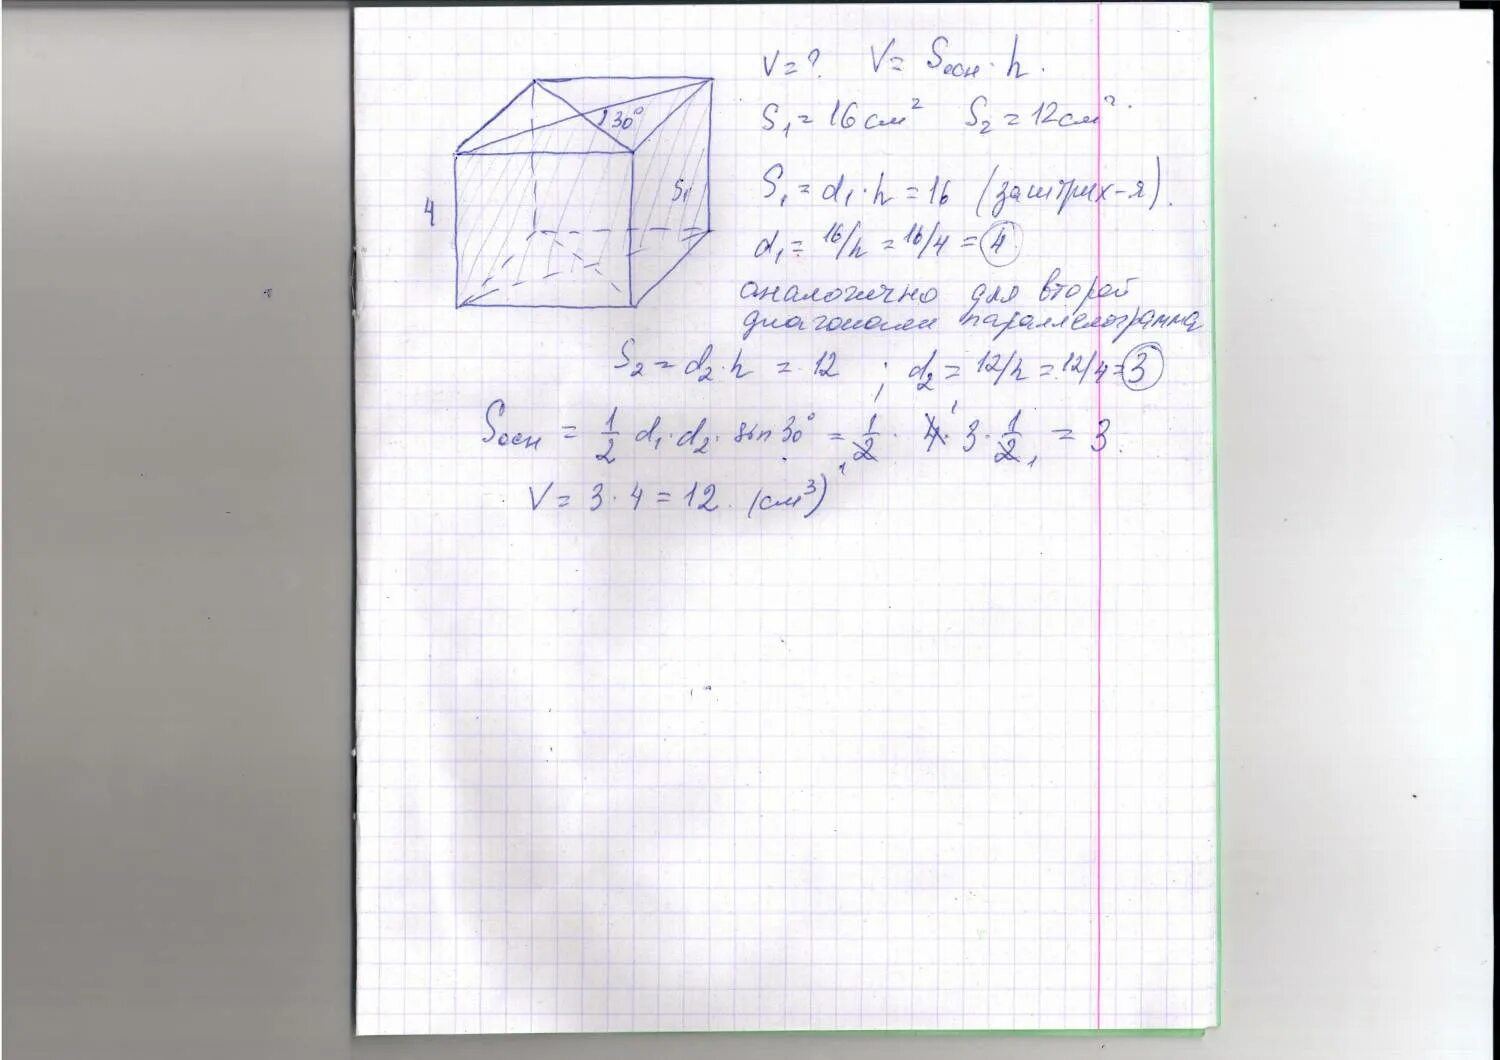 V = ? V = Sосн · h.
S₁ = 16 см² S₂ = 12 см².
30°
S₁
4
S₁ = d₁ · h = 16 (заштрих-я).
d₁ = 16/h = 16/4 = 4
аналогично для второй
диагонали параллелограмма
S₂ = d₂ · h = 12 ; d₂ = 12/h = 12/4 = 3
Sосн = 1/2 d₁ · d₂ · sin 30° = 1/2 · 4 · 3 · 1/2 = 3.
V = 3 · 4 = 12. (см³)